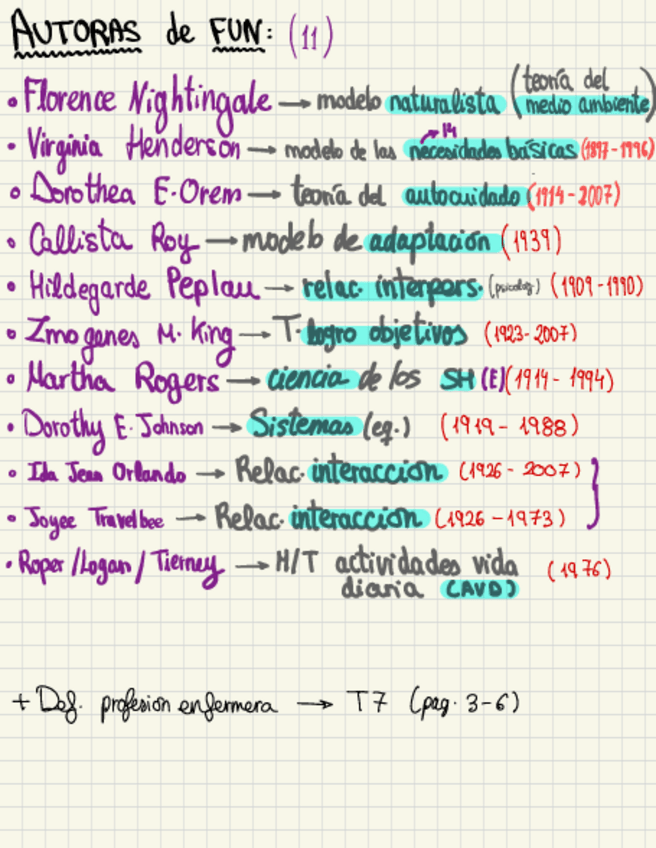 AUTORAS de FUN: (11)
• Florence Nightingale → modelo naturalista (teoría del medio ambiente)
14
• Virginia Henderson → modelo de las necesidades básicas (1897-1996)
• Dorothea E. Orem → teoría del autocuidado (1914-2007)
• Callista Roy → modelo de adaptación (1939)
• Hildegarde Peplau → relac. interpers. (psicolog.) (1909-1990)
• Imogenes M. King → T. logro objetivos (1923-2007)
• Martha Rogers → ciencia de los SH (E) (1914-1994)
• Dorothy E. Johnson → Sistemas (eq.) (1919-1988)
• Ida Jean Orlando → Relac. interaccion (1926-2007)
• Joyee Travelbee → Relac. interaccion (1926-1973)
• Roper/Logan/Tierney → H/T actividades vida
diaria (AVD) (1976)
+ Def. profesion enfermera → T7 (pag. 3-6)